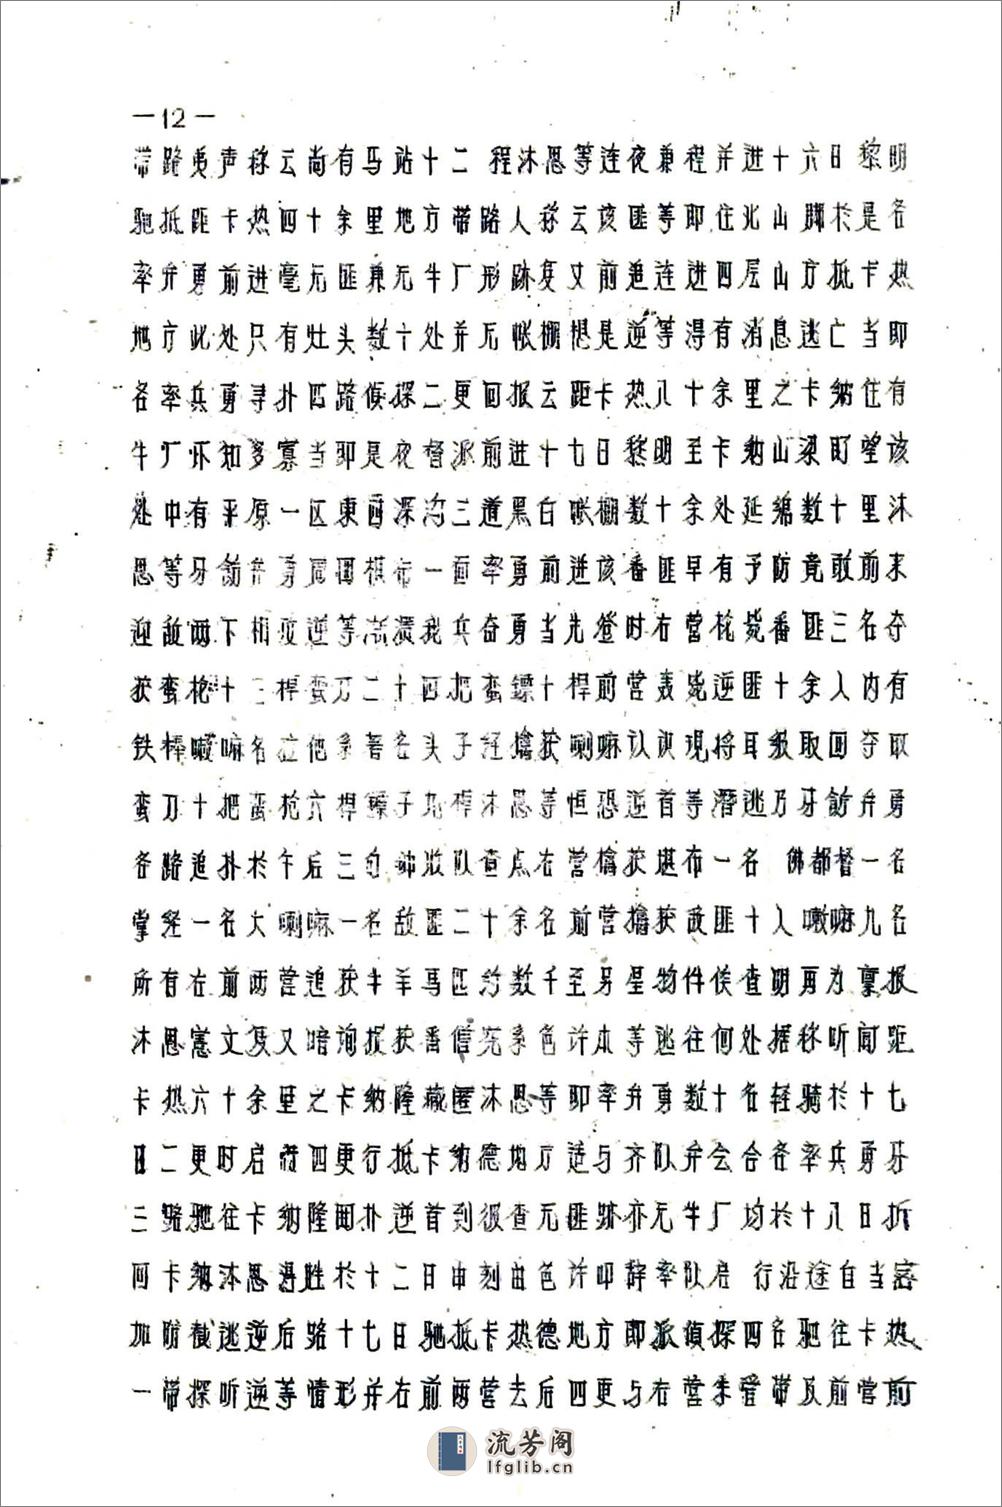 —12—
带路夷声称云尚有马站十二 程沐恩等连夜兼程并进十六日黎明
驰抵距卡热四十余里地方带路人称云该匪等即住北山脚於是各
率弁勇前进毫无匪兼无牛厂形跡复又前追连进四层山方抵卡热
地方此处只有灶头数十处并无帐棚想是逆等得有消息逃亡当即
各率兵勇寻扑四路侦探二更回报云距卡热八十余里之卡纳住有
牛厂怀知多寡当即是夜督派前进十七日黎明至卡纳山梁盯望该
处中有平原一区东西深沟三道黑白帐棚数十余处延绵数十里沐
恩等牙饬弁勇 布一面率勇前进该番匪早有予防竟敢前来
迎敌两下相 逆等 我兵奋勇当先登时右营枪毙番匪三名夺
获蛮枪十三桿蛮刀二十四把蛮鏢十桿前营轰毙逆匪十余人内有
铁棒喇嘛名 他 著名头子经擒获喇嘛认识现将耳级取回夺取
蛮刀十把蛮枪六桿 子九桿沐恩等恒恐逆首等潛逃乃牙飭弁勇
各路追扑於午后三 收队查点右营擒获堪布一名 佛都督一名
掌经一名大喇嘛一名敌匪二十余名前营擒获敌匪十人喇嘛九名
所有在前两营追获牛羊马匹约数千至牙呈物件俟查明再为稟报
沐恩憲文复又暗询援获番僧 系色许本等逃往何处据移听闻距
卡热六十余里之卡纳隆藏匿沐恩等即率弁勇数十名轻骑於十七
日二更时启 四更行抵卡纳德地方适与齐队弁会合各率兵勇牙
三路驰往卡纳隆围扑逆首到彼查无匪跡亦无牛厂均於十八日折
回卡纳沐恩得胜於十二日申刻由色许叩辞率队启 行沿途自当密
加防截逃逆后路十七日驰抵卡热德地方即派侦探四名驰往卡热
一带探听逆等情形并右前两营去后四更与右营朱 带及前营前
流芳阁
lfglib.cn